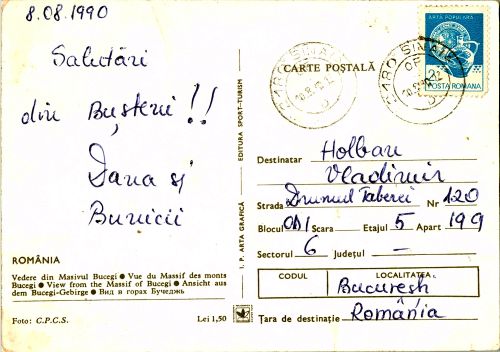 8.08.1990
Salutări
din Bușteni!!
Dana și
Bunicii
ROMÂNIA
Vedere din Masivul Bucegi ● Vue du Massif des monts
Bucegi ● View from the Massif of Bucegi ● Ansicht aus
dem Bucegi-Gebirge ● Вид в горах Бучеджь
Foto: C.P.C.S.
Lei 1,50
I. P. ARTA GRAFICĂ
EDITURA SPORT-TURISM
CARTE POȘTALĂ
2180 SINAIA
2180 SINAIA
ARTA POPULARA
POSTA ROMANA
Destinatar Holban
Vladimir
Strada Drumul Taberei Nr 120
Blocul OD1 Scara Etajul 5 Apart 199
Sectorul 6 Județul —
CODUL LOCALITATEA
București
România
Țara de destinație